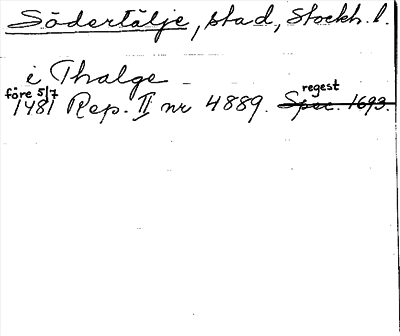 Södertälje, stad, Stockh. l.
i Thalge
före 5/7 regest
1481 Rep. II nr 4889. Spec. 1693.